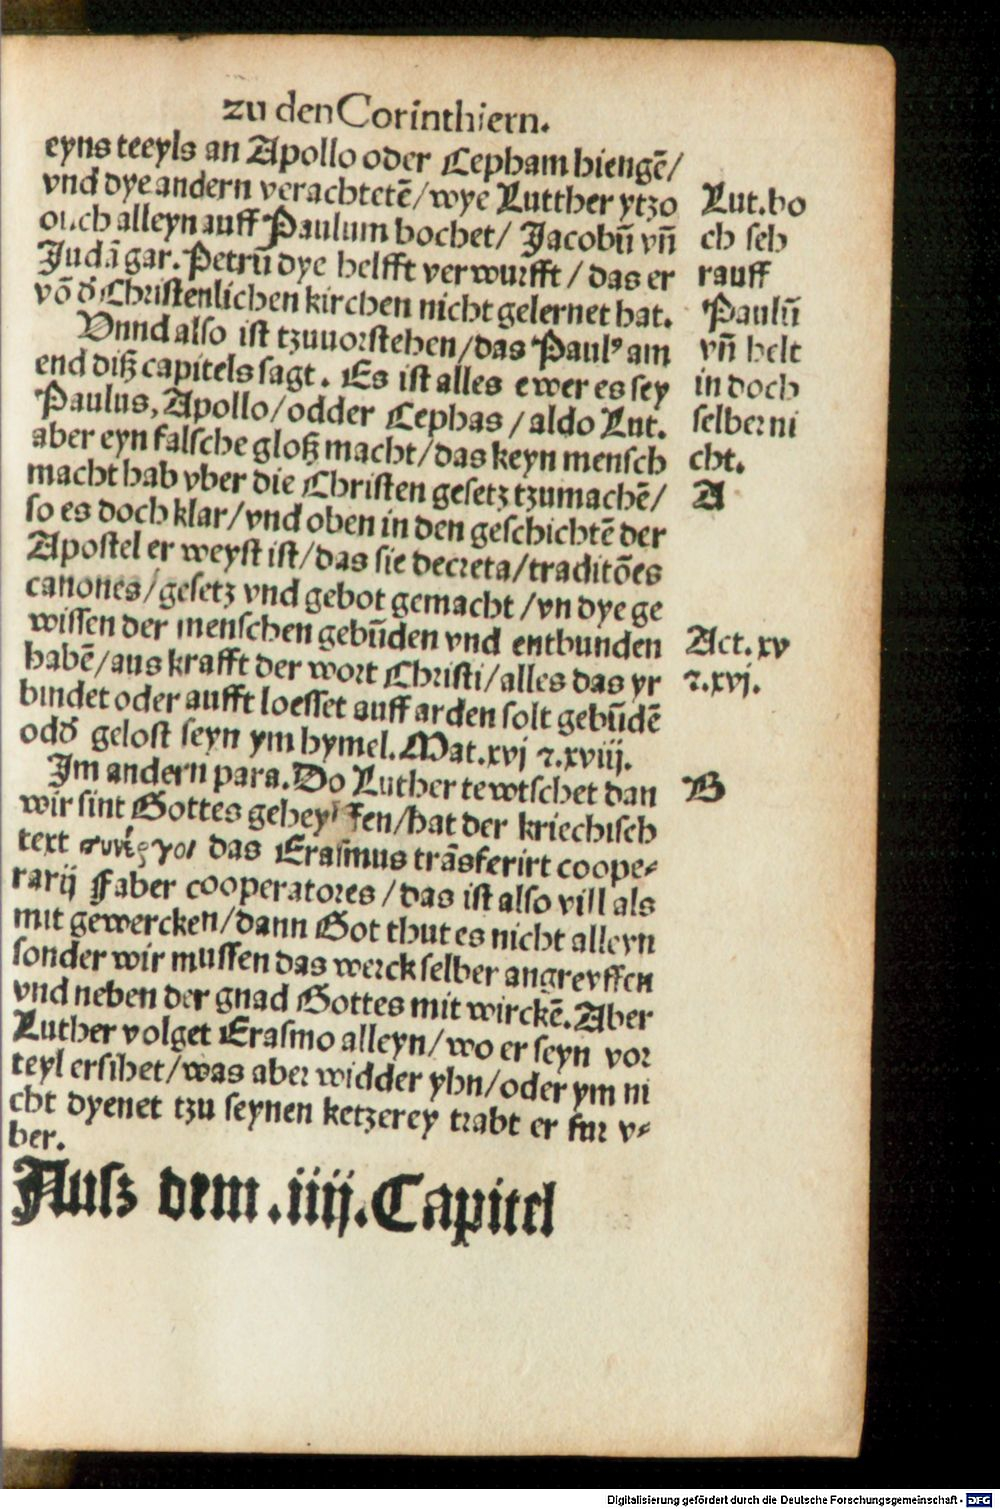 zu den Corinthiern.
eyns teeyls an Apollo oder Cepham hiengē/
vnd dye andern verachtetē/wye Lutther ytzo
ouch alleyn auff Paulum bochet/ Jacobū vñ
Judā gar. Petrū dye helfft verwurfft/das er
vō d̕ Christenlichen kirchen nicht gelernet hat.
Vnnd also ist tzuuorstehen/das Paulꝰ am
end diß capitels sagt. Es ist alles ewer es sey
Paulus, Apollo/odder Cephas/aldo Lut.
aber eyn falsche gloß macht/das keyn mensch
macht hab vber die Christen gesetz tzumachē/
so es doch klar/vnd oben in den geschichtē der
Apostel er weyst ist/das sie decreta/traditōes
canones/gesetz vnd gebot gemacht/vn dye ge
wissen der menschen gebūden vnd entbunden
habē/aus krafft der wort Christi/alles das yr
bindet oder aufft loesset auff arden solt gebūdē
odd̕ gelost seyn ym hymel. Mat.xvj ⁊.xviij.
Jm andern para. Do Luther tewtschet dan
wir sint Gottes gehey fen/hat der kriechisch
text συνέργοι das Erasmus trāsferirt coope⸗
rarij Faber cooperatores/das ist also vill als
mit gewercken/dann Got thut es nicht alleyn
sonder wir mussen das werck selber angreyffen
vnd neben der gnad Gottes mit wirckē. Aber
Luther volget Erasmo alleyn/wo er seyn vor
teyl ersihet/was aber widder yhn/oder ym ni
cht dyenet tzu seynen ketzerey trabt er fur v⸗
ber.
Ausz dem .iiij. Capitel
Lut. bo
ch seh
rauff
Paulū
vñ helt
in doch
selber ni
cht.
A
Act. xv
⁊.xvj.
B
Digitalisierung gefördert durch die Deutsche Forschungsgemeinschaft - DFG